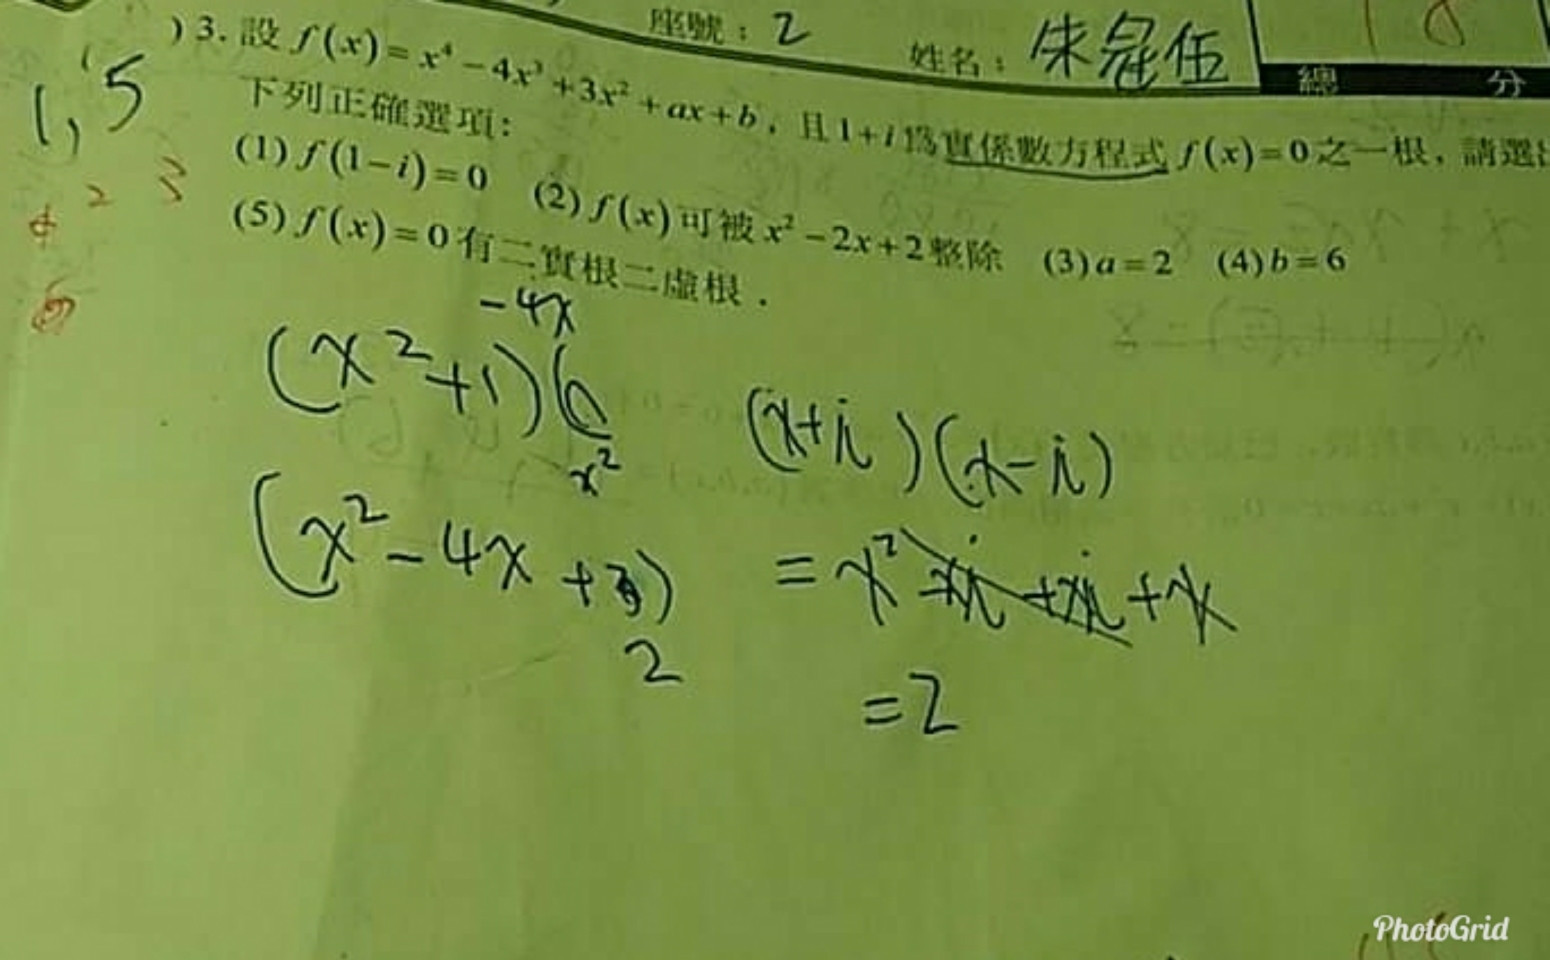 座號：2 姓名：朱冠伍
總 分
) 3. 設 f(x) = x⁴ − 4x³ + 3x² + ax + b，且 1 + i 為實係數方程式 f(x) = 0 之一根，請選
下列正確選項：
(1) f(1 − i) = 0 (2) f(x) 可被 x² − 2x + 2 整除 (3) a = 2 (4) b = 6
(5) f(x) = 0 有二實根二虛根．
1, 5
2 3
4
−4x
(x² + 1)(
x²
(x² − 4x + 3)
2
(x+i)(x−i)
= x² − xi + xi + x
= 2
PhotoGrid